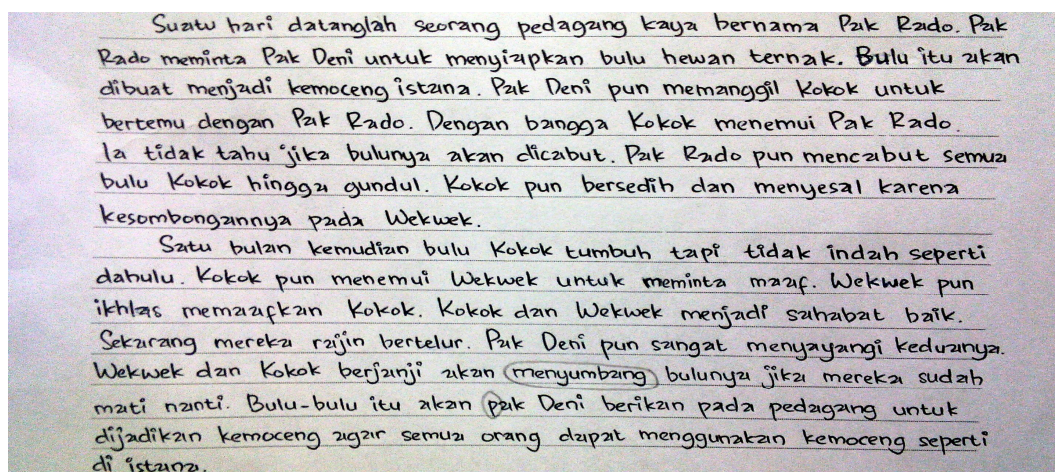 Suatu hari datanglah seorang pedagang kaya bernama Pak Rado. Pak
Rado meminta Pak Deni untuk menyiapkan bulu hewan ternak. Bulu itu akan
dibuat menjadi kemoceng istana. Pak Deni pun memanggil Kokok untuk
bertemu dengan Pak Rado. Dengan bangga Kokok menemui Pak Rado.
Ia tidak tahu jika bulunya akan dicabut. Pak Rado pun mencabut semua
bulu Kokok hingga gundul. Kokok pun bersedih dan menyesal karena
kesombongannya pada Wekwek.
Satu bulan kemudian bulu Kokok tumbuh tapi tidak indah seperti
dahulu. Kokok pun menemui Wekwek untuk meminta maaf. Wekwek pun
ikhlas memaafkan Kokok. Kokok dan Wekwek menjadi sahabat baik.
Sekarang mereka rajin bertelur. Pak Deni pun sangat menyayangi keduanya.
Wekwek dan Kokok berjanji akan menyumbang bulunya jika mereka sudah
mati nanti. Bulu-bulu itu akan pak Deni berikan pada pedagang untuk
dijadikan kemoceng agar semua orang dapat menggunakan kemoceng seperti
di istana.